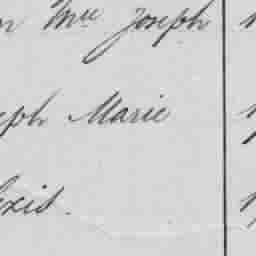 Mre Joseph
eph Marie
exis.